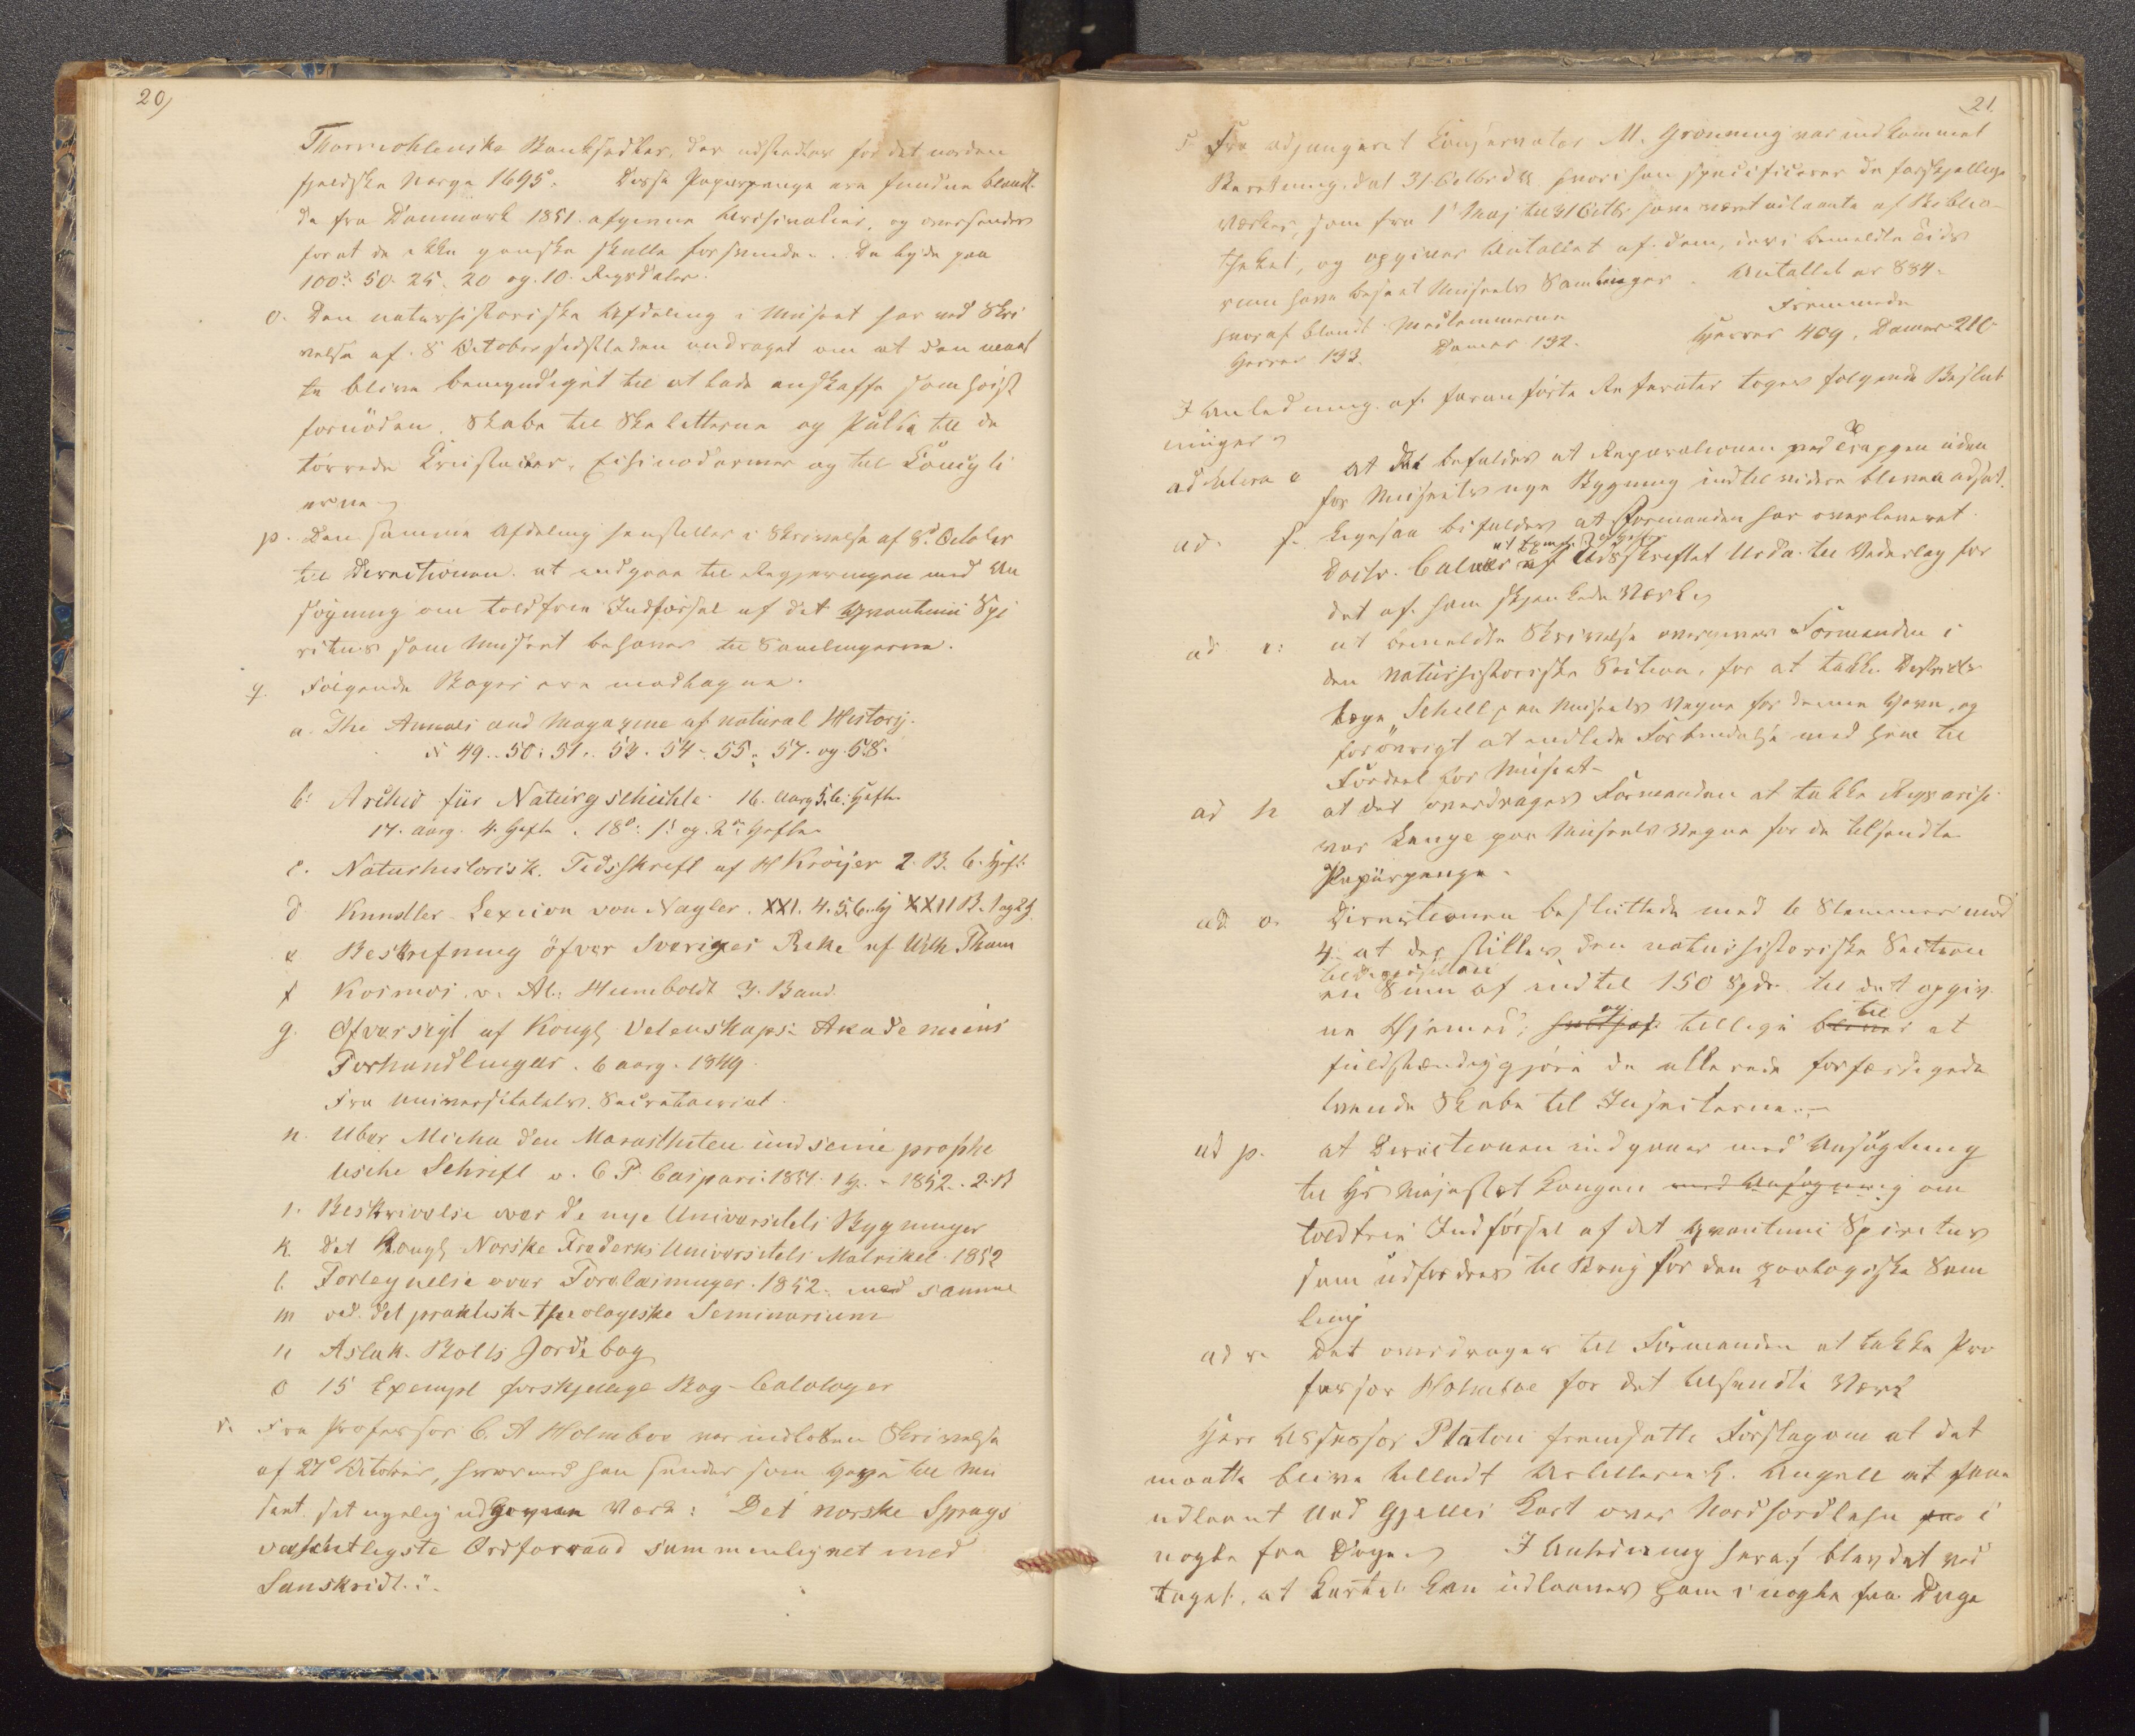 20)
Thormohlenske Banksedler, der udstedtes for det norden
fjeldske Norge 1695. Disse Papirpenge ere fundne blandt
de fra Danmark 1851 afgivne Archivalier, og oversendes
forat de ikke ganske skulle forsvinde. De lyde paa
100. 50. 25. 20 og. 10. Rigsdaler.
o. Den naturhistoriske Afdeling i Museet har ved Skri
velse af 8 October sidstleden andraget om at den maat
te blive bemyndiget til at lade anskaffe som høist
fornøden. Skabe til Skeletterne og Pulte til de
tørrede Crustaceer, Echinodermer og til Conchyli
erne
p. Den samme Afdeling henstiller i Skrivelse af 8de October
til Directionen at indgaae til Regjeringen med An
søgning om toldfrie Indførsel af det Qvantum Spi
ritus som Museet behøver til Samlingerne.
q. Følgende Bøger ere modtagne.
a. The Annals and Magazine of natural History.
N 49. 50. 51. 53. 54. 55. 57. og 58.
b. Archiv für Naturgschichte 16. Aarg 5. 6. Hefte
17. Aarg. 4. Hefte. 18de 1ste og 2det Hefte
c. Naturhistorisk Tidsskrift af H Krøijer 2. B. 6. Heft.
d Kunstler-Lexicon von Nagler. XXI. 4. 5. 6. H XXII B. 1 og 2 H.
e Beskrifning öfver Sveriges Rike af Wilh Tham
f Kosmos. v. Al. Humboldt 3. Band.
g. Ofversigt af Kongl. Vetenskaps-Akademiens
Forhandlingar. 6 aarg. 1849.
Fra Universitetets Secretariat.
h. Uber Micha den Morasthiten und seine prophe
tische Schrift v. C P. Caspari. 1851. 1 H. - 1852. 2. H
i. Beskrivelse over de nye Universitets Bygninger
k. Det Kongl Norske Frederiks Universitets Matrikel 1852
l. Fortegnelse over Forelæsninger. 1852. med samme
m ved det praktisk-theologiske Seminarium
n Aslak Bolts Jordebog
o 15 Exempl forskjellige Bog-Cataloger
r. Fra Professor C. A Holmboe var indløben Skrivelse
af 27de October, hvormed han sender som Gave til Mu
seet sit nylig udgivne Værk: Det norske Sprogs
væsentligste Ordforraad sammenlignet med
Sanskridt.
21
s Fra adjungeret Conservator M. Grønning var indkommet
Beretning dat 31 Octbr d A hvori han specificerer de forskjellige
Værker, som fra 1 Maj til 31 Octbr have været udlaante af Biblio-
theket, og opgiver Antallet af dem, der i bemeldte Tids
rum have beseet Museets Samlinger. Antallet er 884.
hvoraf blandt Medlemmerne Fremmede
Herrer 133. Damer 132. Herrer 409. Damer 210
I Anledning af foranførte Referater toges følgende Beslut
ninger
ad litera e At det bifaldes at Reparationen ved Trappen uden
for Museets nye Bygning indtil videre bliver udsat.
ad f. Ligesaa bifaldes at Formanden har overleveret
Doctr. af Tidsskriftet Urda til Vederlag for
det af ham skjænkede Værk
ad i: at bemeldte Skrivelse overgives Formanden i
den naturhistoriske Section, for at takke Districts
læge Schell paa Museets Vegne for denne Gave, og
forøvrigt at indlede Forbindelse med ham til
Fordeel for Museet
ad n at det overdrages Formanden at takke Rigsarchi
var Lange paa Museets Vegne for de tilsendte
Papirpenge.
ad o. Directionen besluttede med 6 Stemmer mod
4. at der stilles den naturhistoriske Section
til Disposition
en Sum af indtil 150 Spd. til det opgiv
ne Øjemed; og tillige til at
fuldstændiggjøre de allerede forfærdigede
tvende Skabe til Insecterne.
ad p. at Directionen indgaaer med Ansøgtning
til Hs Majestæt Kongen med Ansøgning om
toldfrie Indførsel af det Qvantum Spiritus
som udfordres til Brug for den zoologiske Sam
ling
ad r. Det overdrages til Formanden at takke Pro
fessor Holmboe for det tilsendte Værk
Herr Assessor Platou fremsatte Forslag om at det
maatte blive tilladt Angell at faae
udlaant Ved Gjelles Kort over Nordhordlehn paa i
nogle faa Dage. I Anledning heraf blev det ved
taget, at Kartet kan udlaanes ham i nogle faa Dage